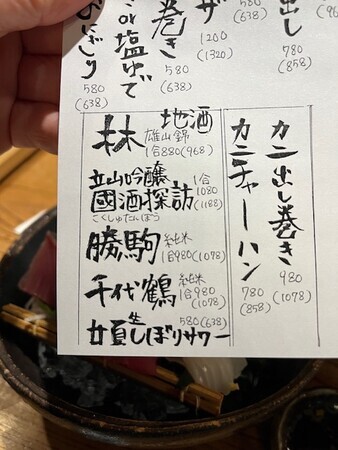 おにぎり
580
(638)
or塩ゆで
巻き
580
(638)
ザ
1200
(1320)
出し
780
(858)
580
(638)
地酒
林
雄山錦
1合880(968)
立山吟醸
國酒探訪
こくしゅたんぼう
1合
1080
(1188)
勝駒
純米
1合980(1078)
千代鶴
純米
1合980
(1078)
生しぼりサワー
580(638)
カニ出し巻き
980
(1078)
カニチャーハン
780
(858)